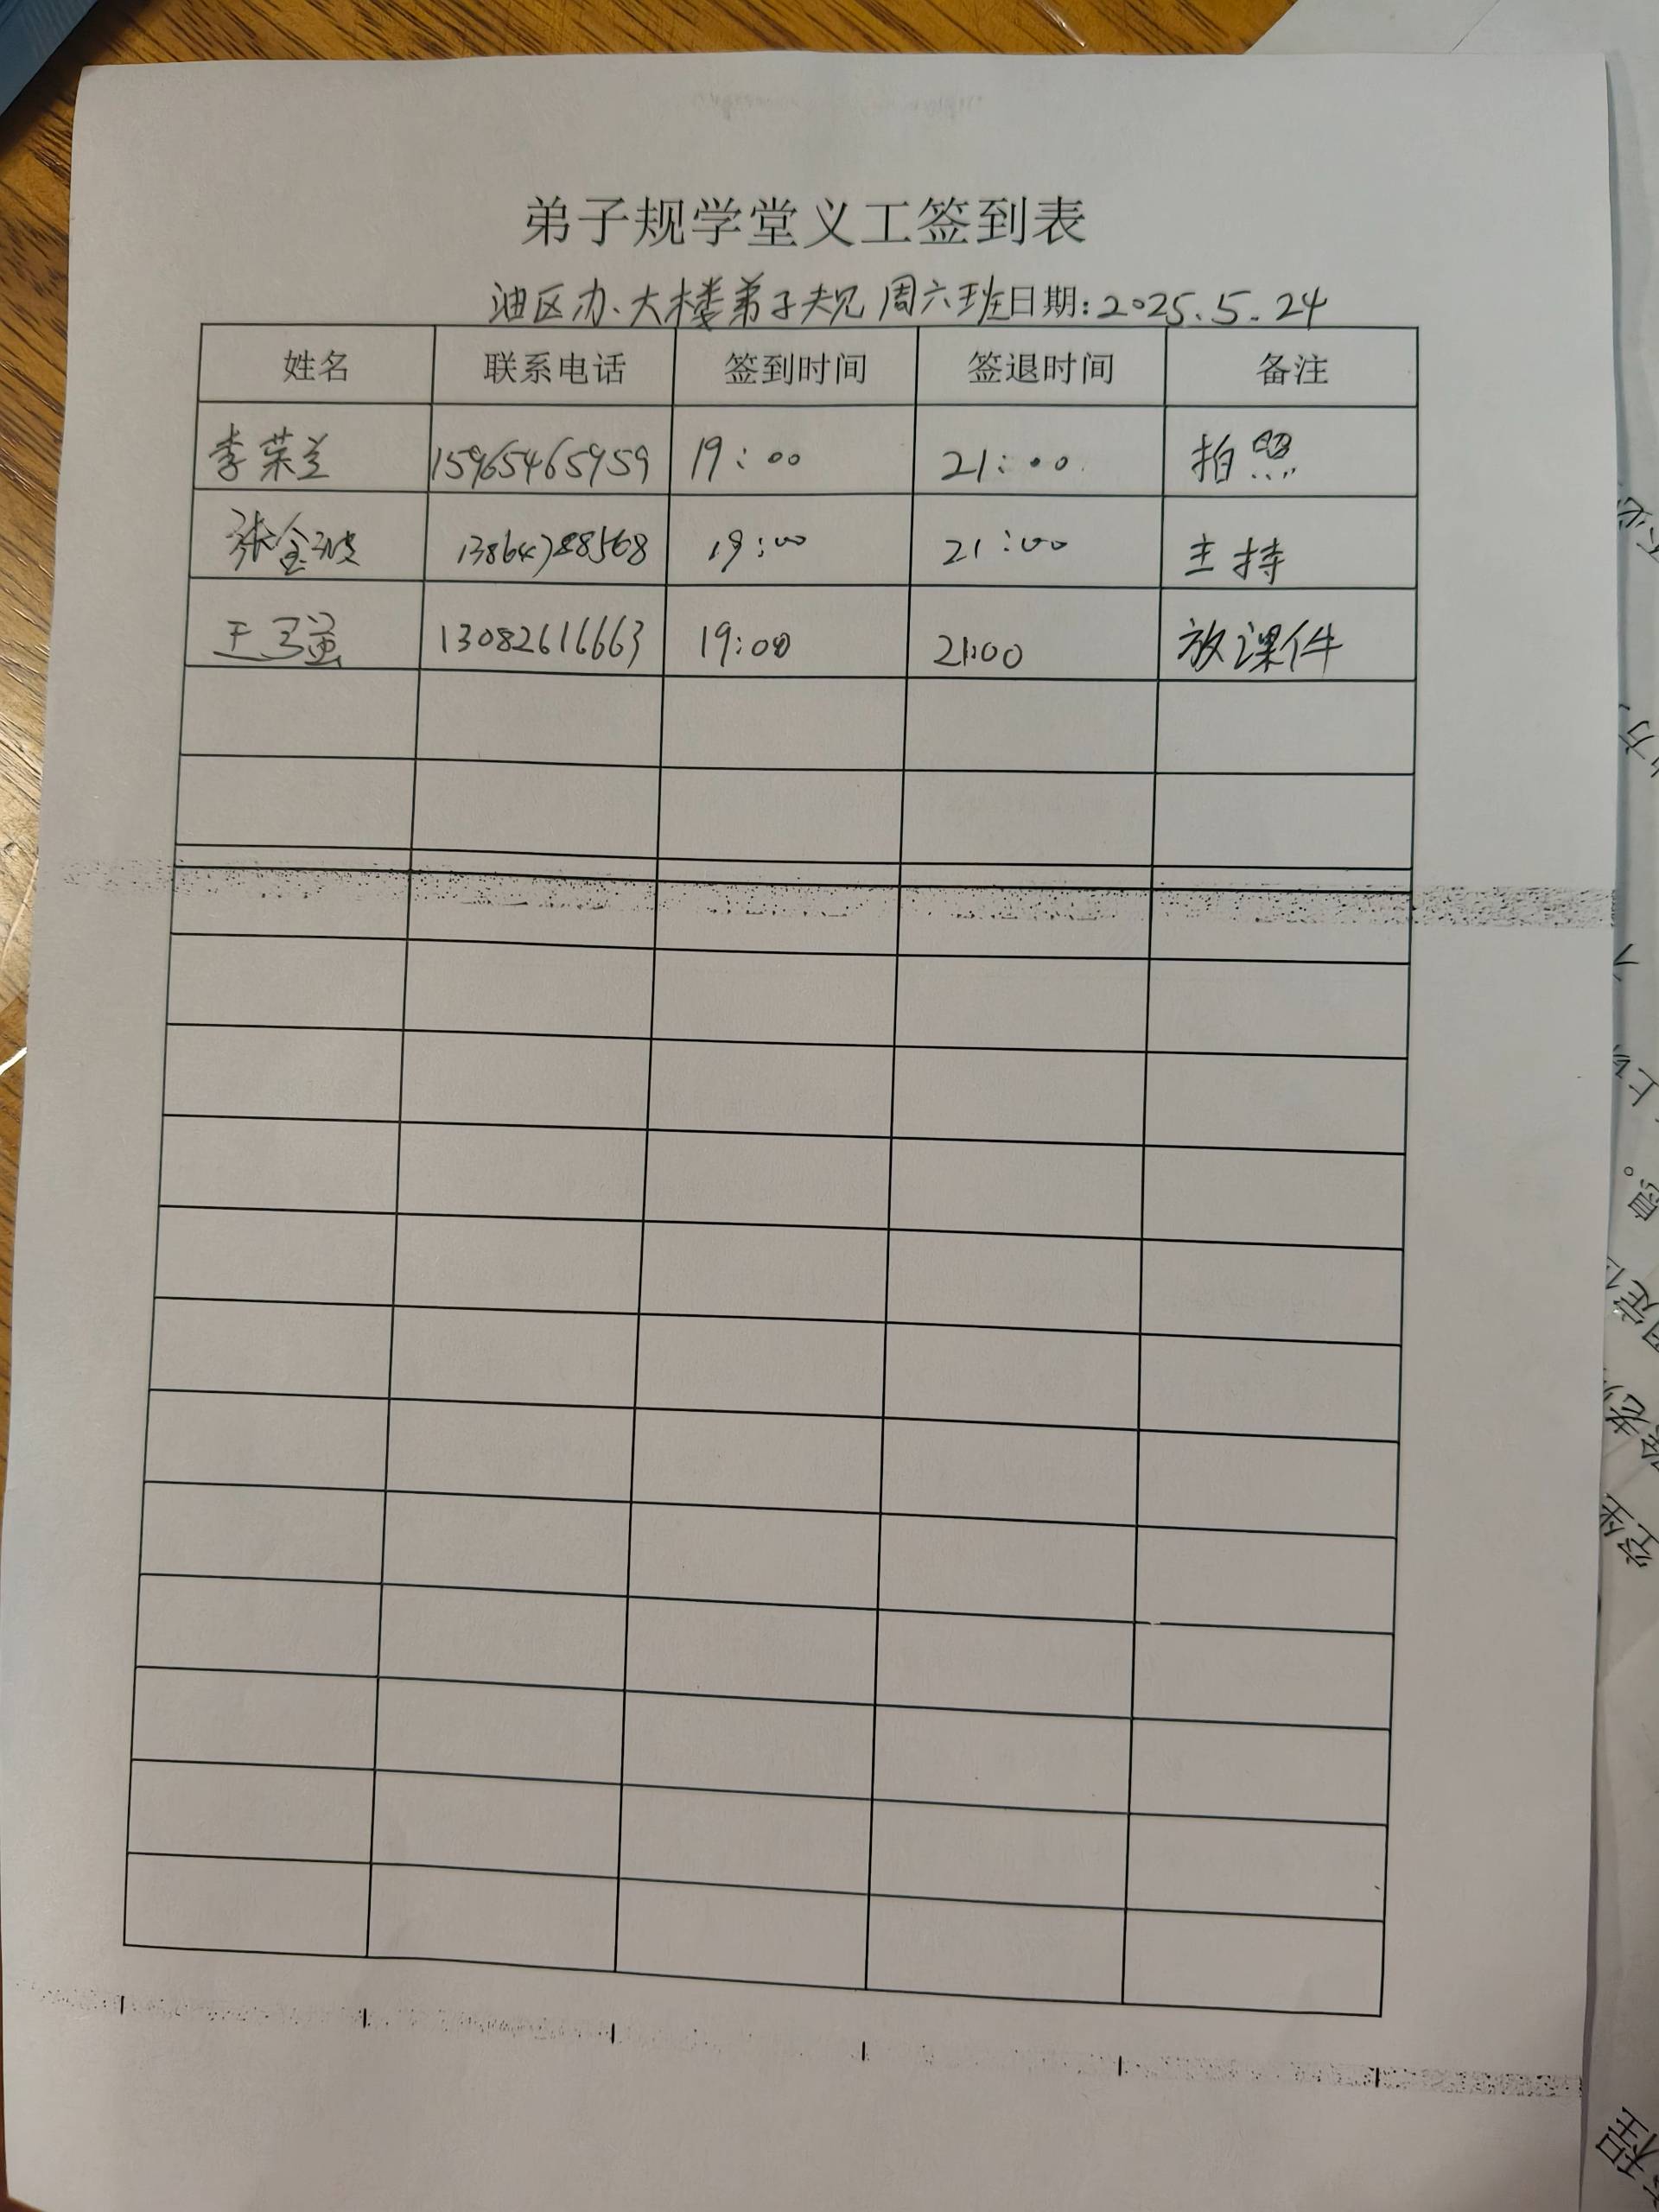 弟子规学堂义工签到表
油区办、大楼弟子规 周六班日期:2025.5.24
姓名 联系电话 签到时间 签退时间 备注
李荣兰 15965465959 19:00 21:00 拍照
张金波 13864788568 19:00 21:00 主持
王 13082616663 19:00 21:00 放课件
方,
上
宫。
定
老
坐
程